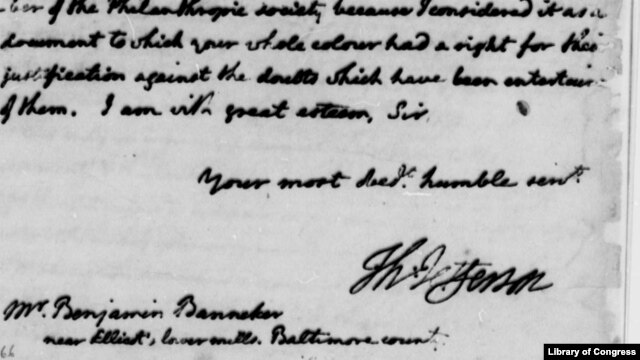 ber of the Philanthropic society, because I considered it as a
document to which your whole colour had a right for their
justification against the doubts which have been entertain
of them. I am with great esteem, Sir,
Your most obedt. humble servt.
Th: Jefferson
Mr. Benjamin Banneker
near Ellicot's, lower mills. Baltimore county
66
Library of Congress